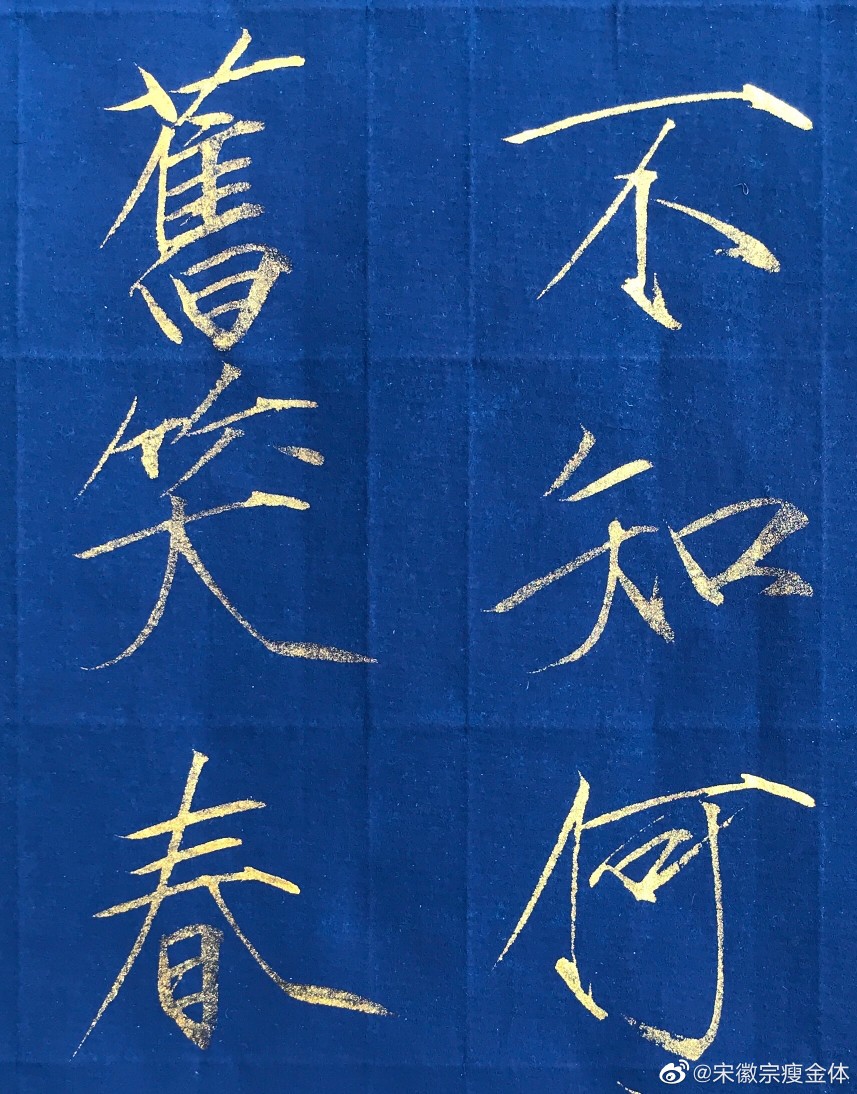 不知何
舊笑春
@宋徽宗瘦金体